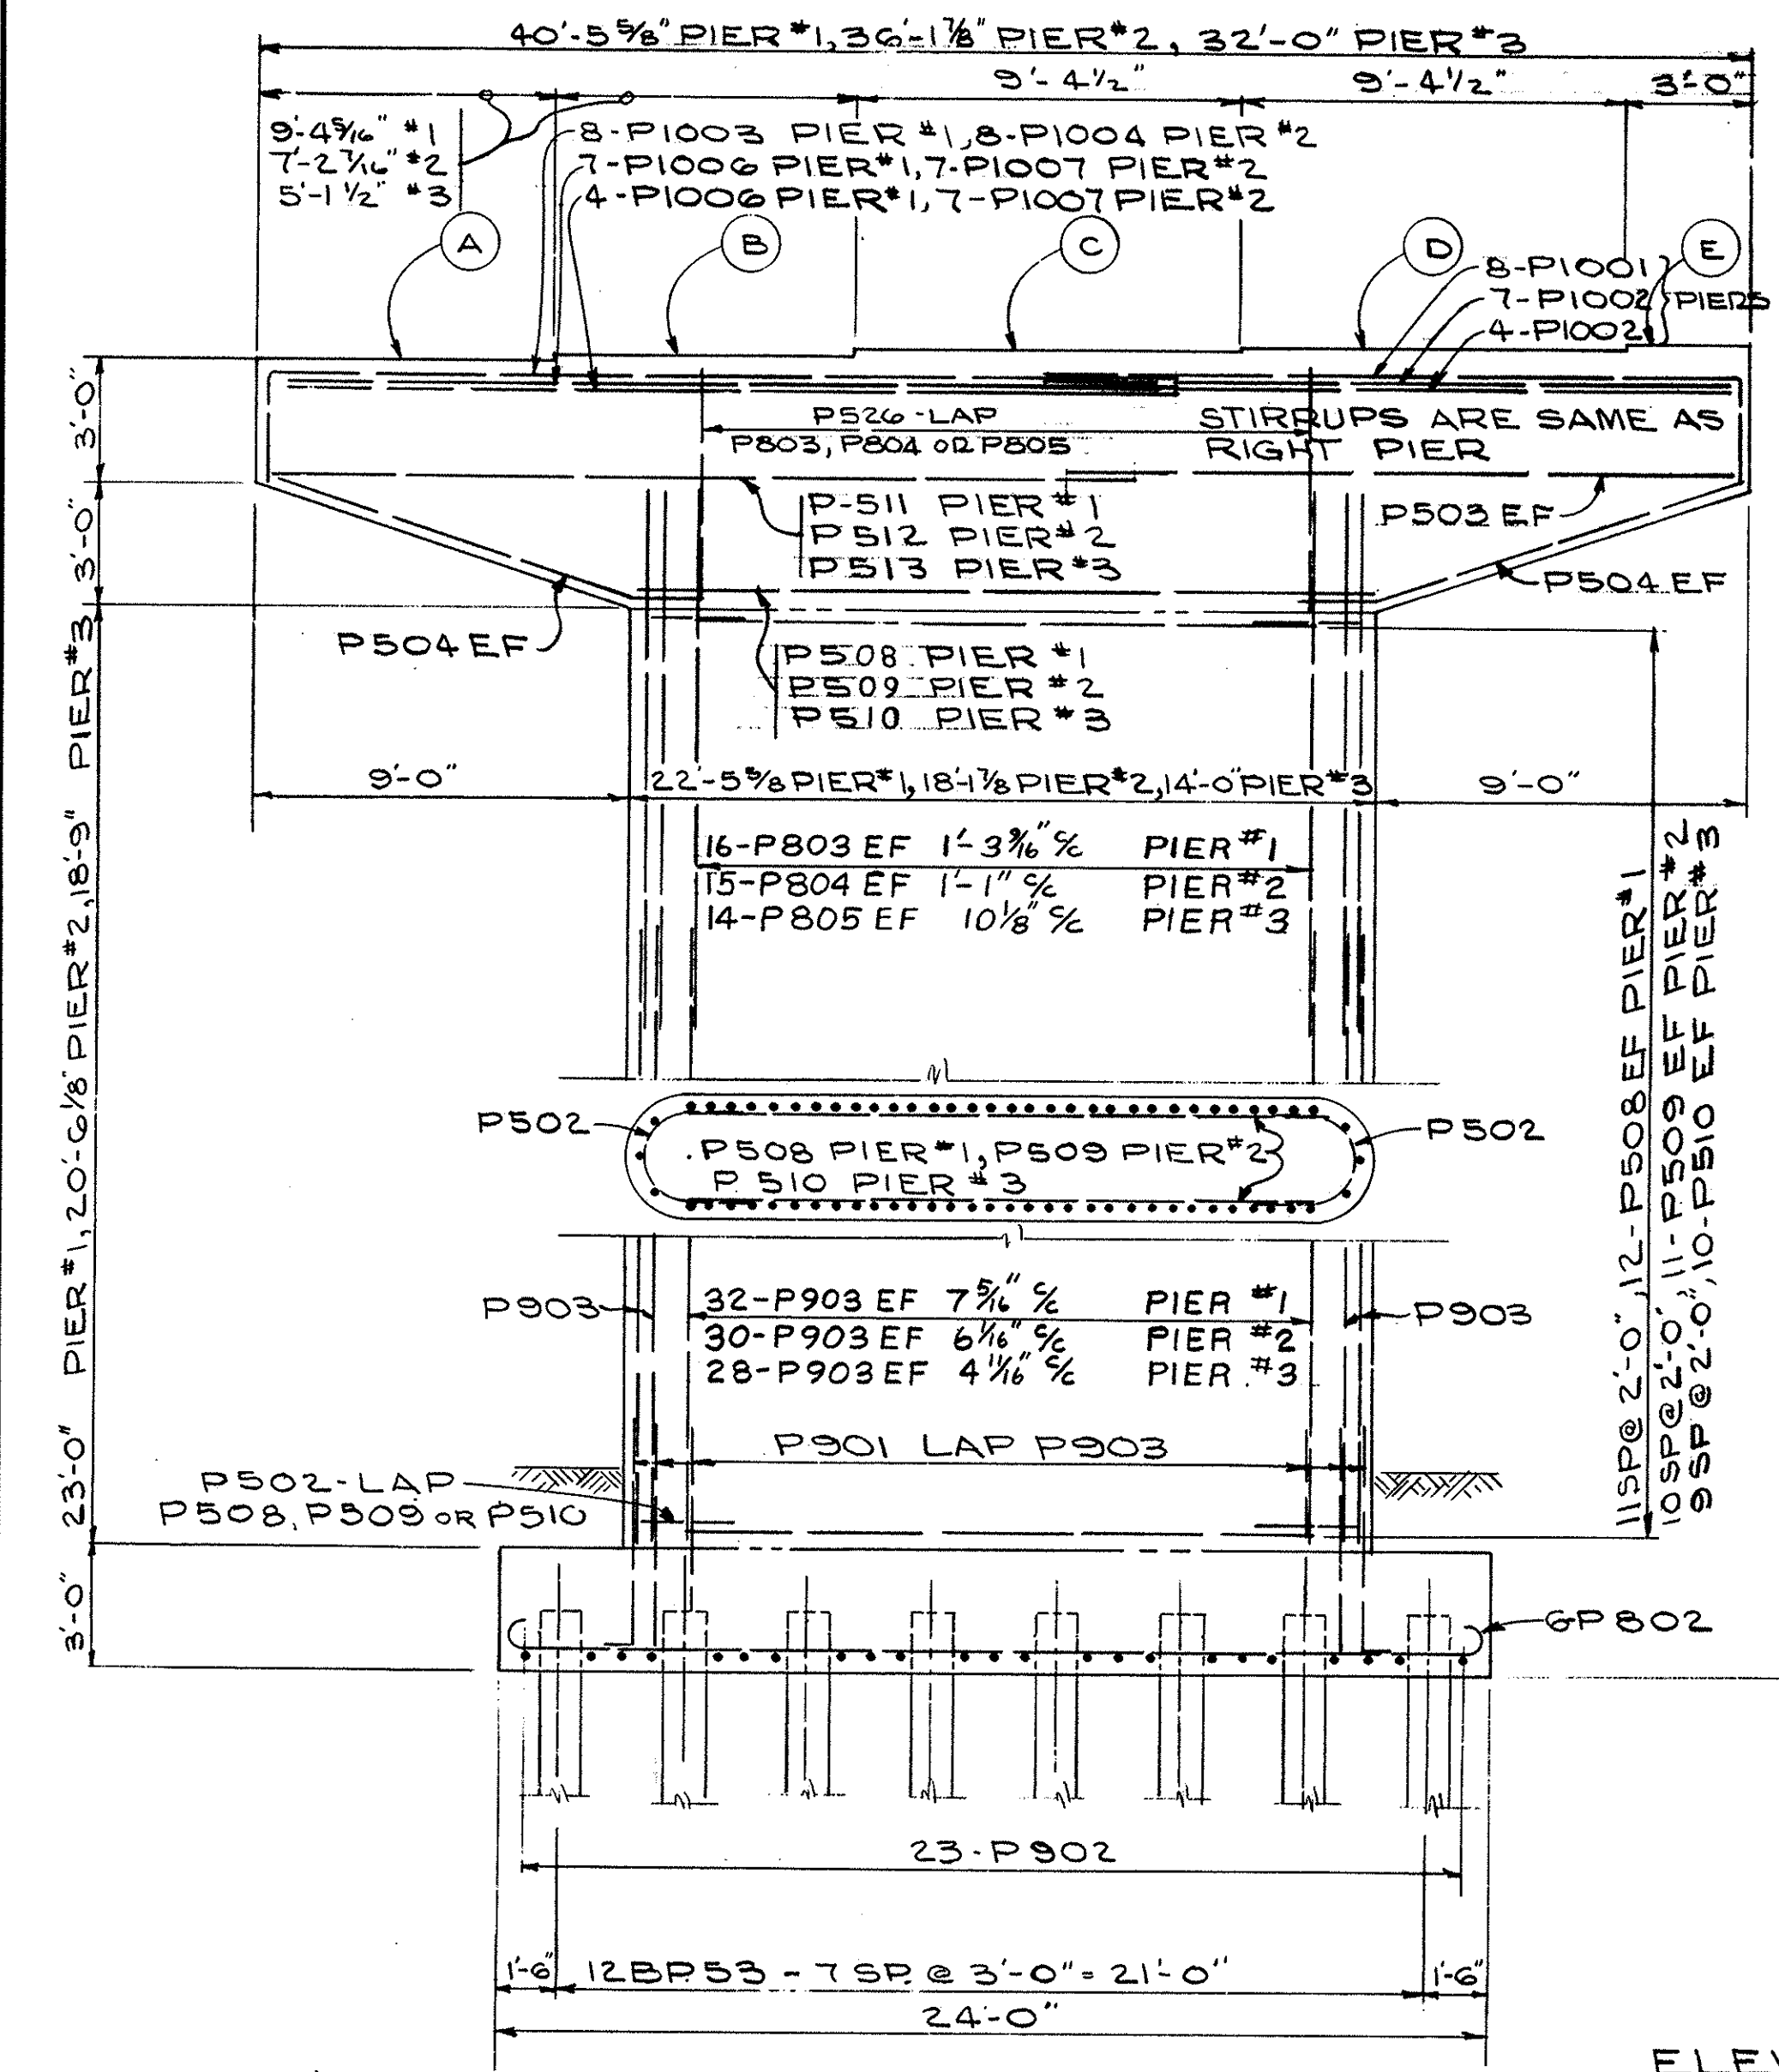 40'-5 5/8" PIER #1, 36'-1 7/8" PIER #2, 32'-0" PIER #3
9'-4 1/2"
9'-4 1/2"
3'-0"
9'-4 5/16" #1
7'-2 7/16" #2
5'-1 1/2" #3
8-P1003 PIER #1, 8-P1004 PIER #2
7-P1006 PIER #1, 7-P1007 PIER #2
4-P1006 PIER #1, 7-P1007 PIER #2
A
B
C
D
E
8-P1001
7-P1002 PIERS
4-P1002
3'-0"
P526-LAP
P803, P804 OR P805
STIRRUPS ARE SAME AS
RIGHT PIER
3'-0"
P-511 PIER #1
P512 PIER #2
P513 PIER #3
P503 EF
P504 EF
P504 EF
P508 PIER #1
P509 PIER #2
P510 PIER #3
9'-0"
22'-5 5/8 PIER #1, 18'-1 7/8 PIER #2, 14'-0" PIER #3
9'-0"
16-P803 EF 1'-3 9/16" c/c PIER #1
15-P804 EF 1'-1" c/c PIER #2
14-P805 EF 10 1/8" c/c PIER #3
23'-0" PIER #1, 20'-6 1/8" PIER #2, 18'-9" PIER #3
11SP@ 2'-0", 12-P508 EF PIER #1
10SP@ 2'-0", 11-P509 EF PIER #2
9SP@ 2'-0", 10-P510 EF PIER #3
P502
P502
P508 PIER #1, P509 PIER #2
P 510 PIER #3
P903
P903
32-P903 EF 7 5/16" c/c PIER #1
30-P903 EF 6 1/16" c/c PIER #2
28-P903 EF 4 11/16" c/c PIER #3
P901 LAP P903
P502-LAP
P508, P509 OR P510
3'-0"
6P802
23-P902
1'-6"
12BP53 - 7 SP. @ 3'-0" = 21'-0"
1'-6"
24'-0"